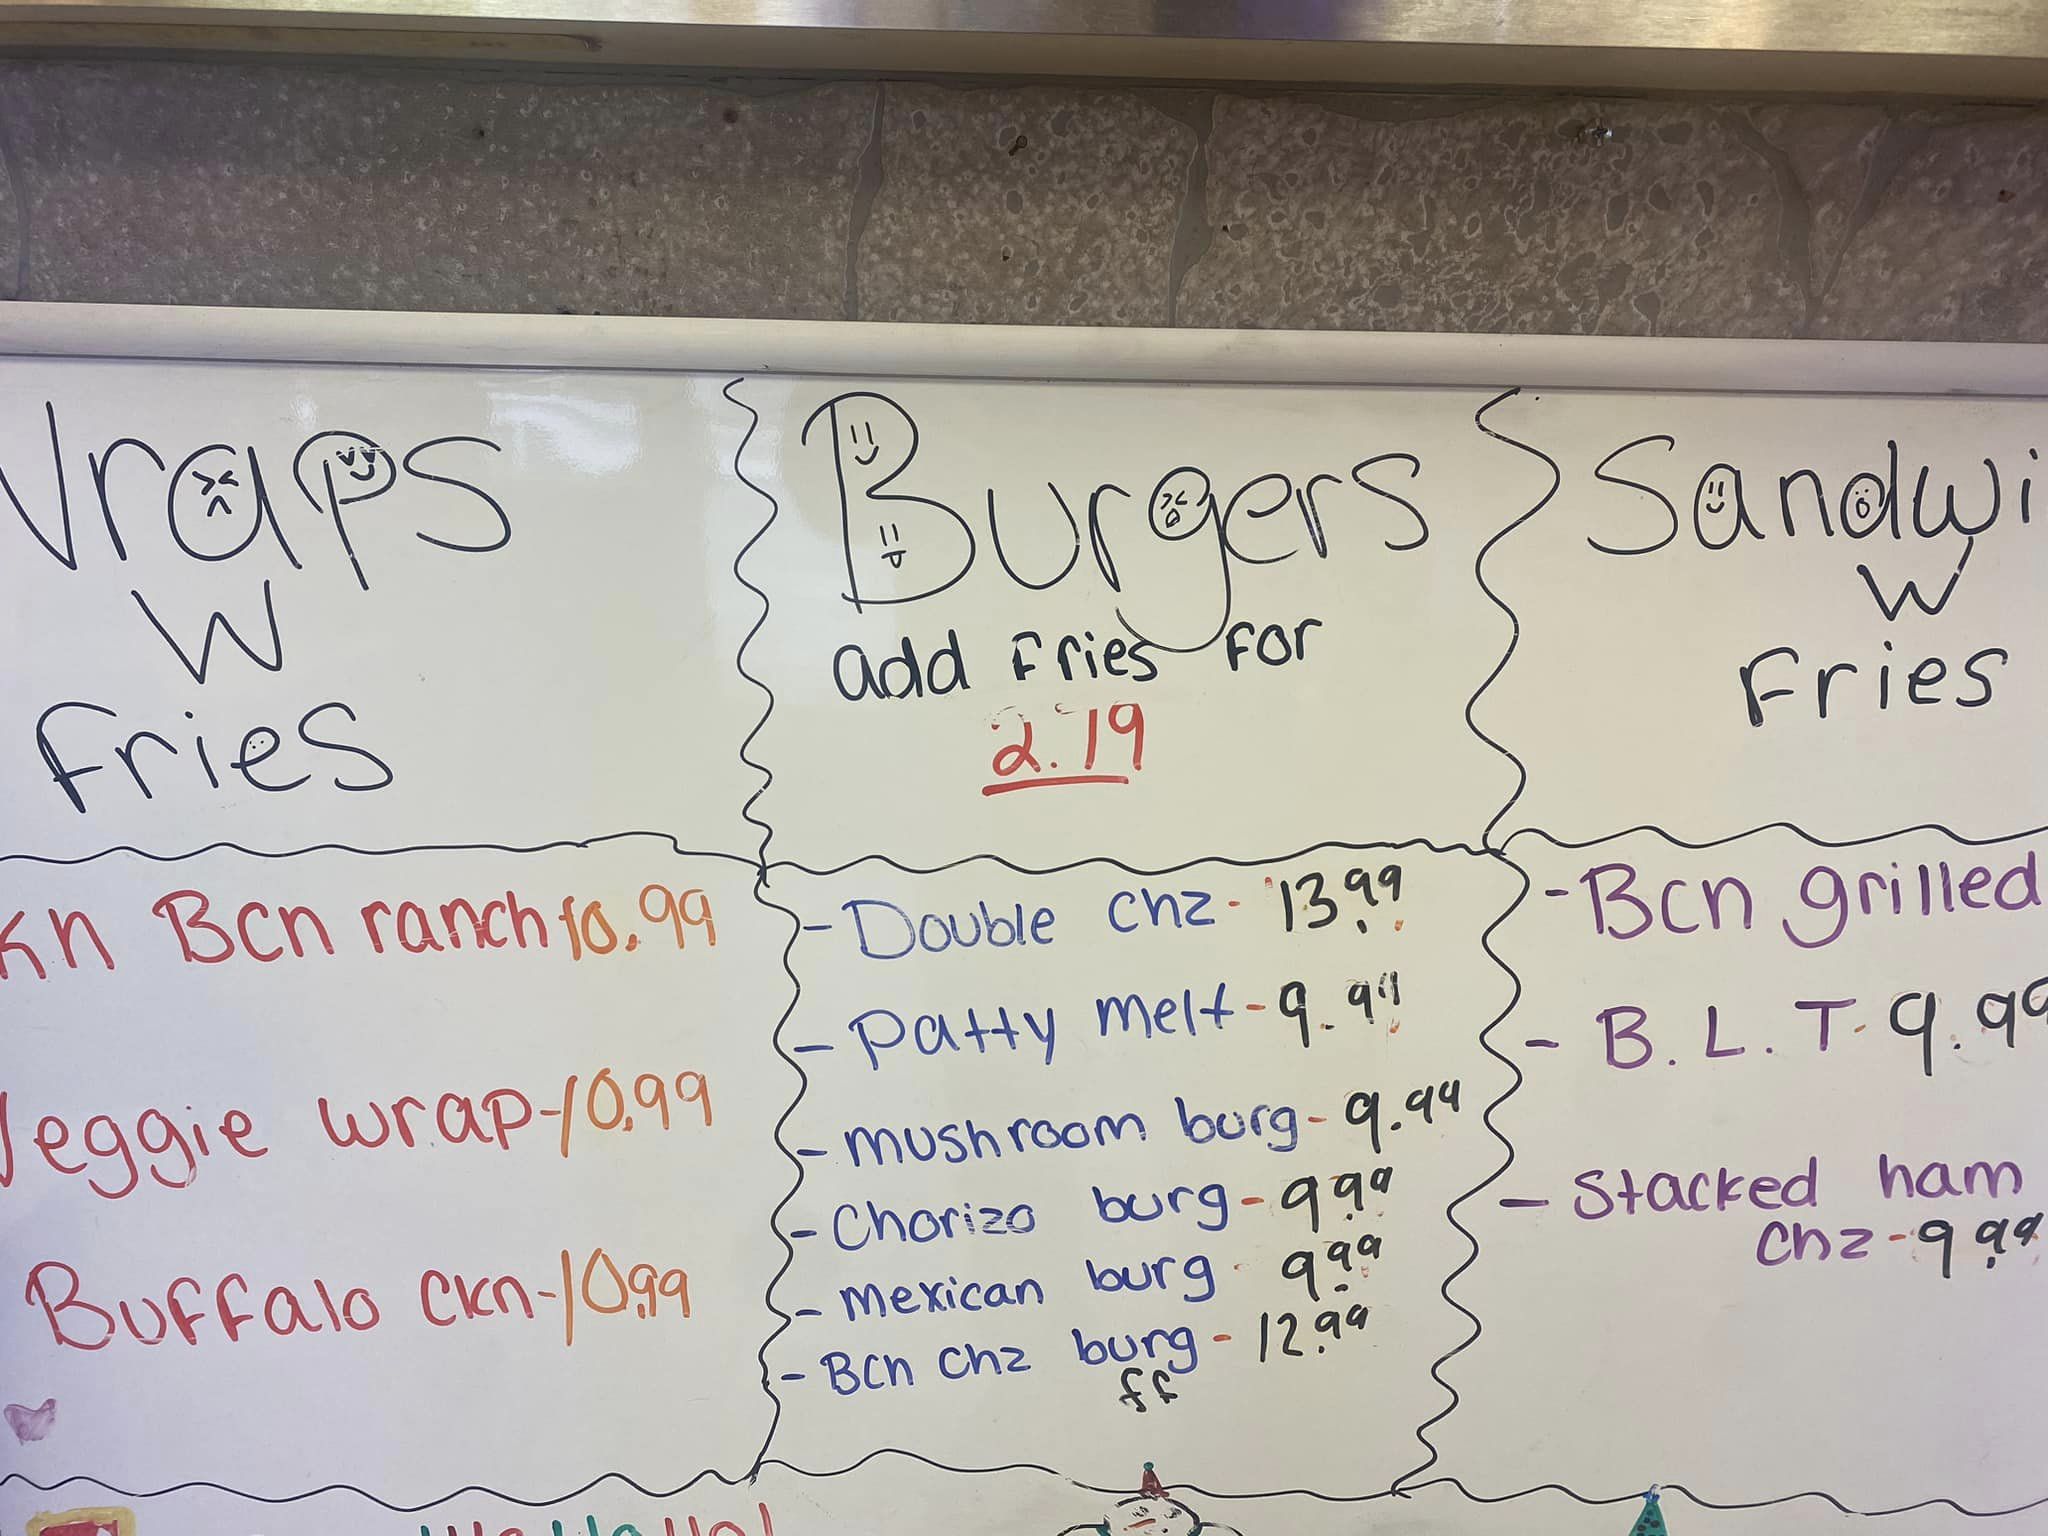 Wraps
W
Fries
Kn Bcn ranch 10.99
Veggie wrap-10.99
Buffalo ckn-10.99
Burgers
add Fries for
2.79
- Double chz - 13.99
- Patty melt - 9.99
- mushroom burg - 9.99
- Chorizo burg - 9.99
- mexican burg - 9.99
- Bcn chz burg - 12.99
ff
Sandwi
W
Fries
- Bcn grilled
- B.L.T - 9.99
- Stacked ham
chz - 9.99